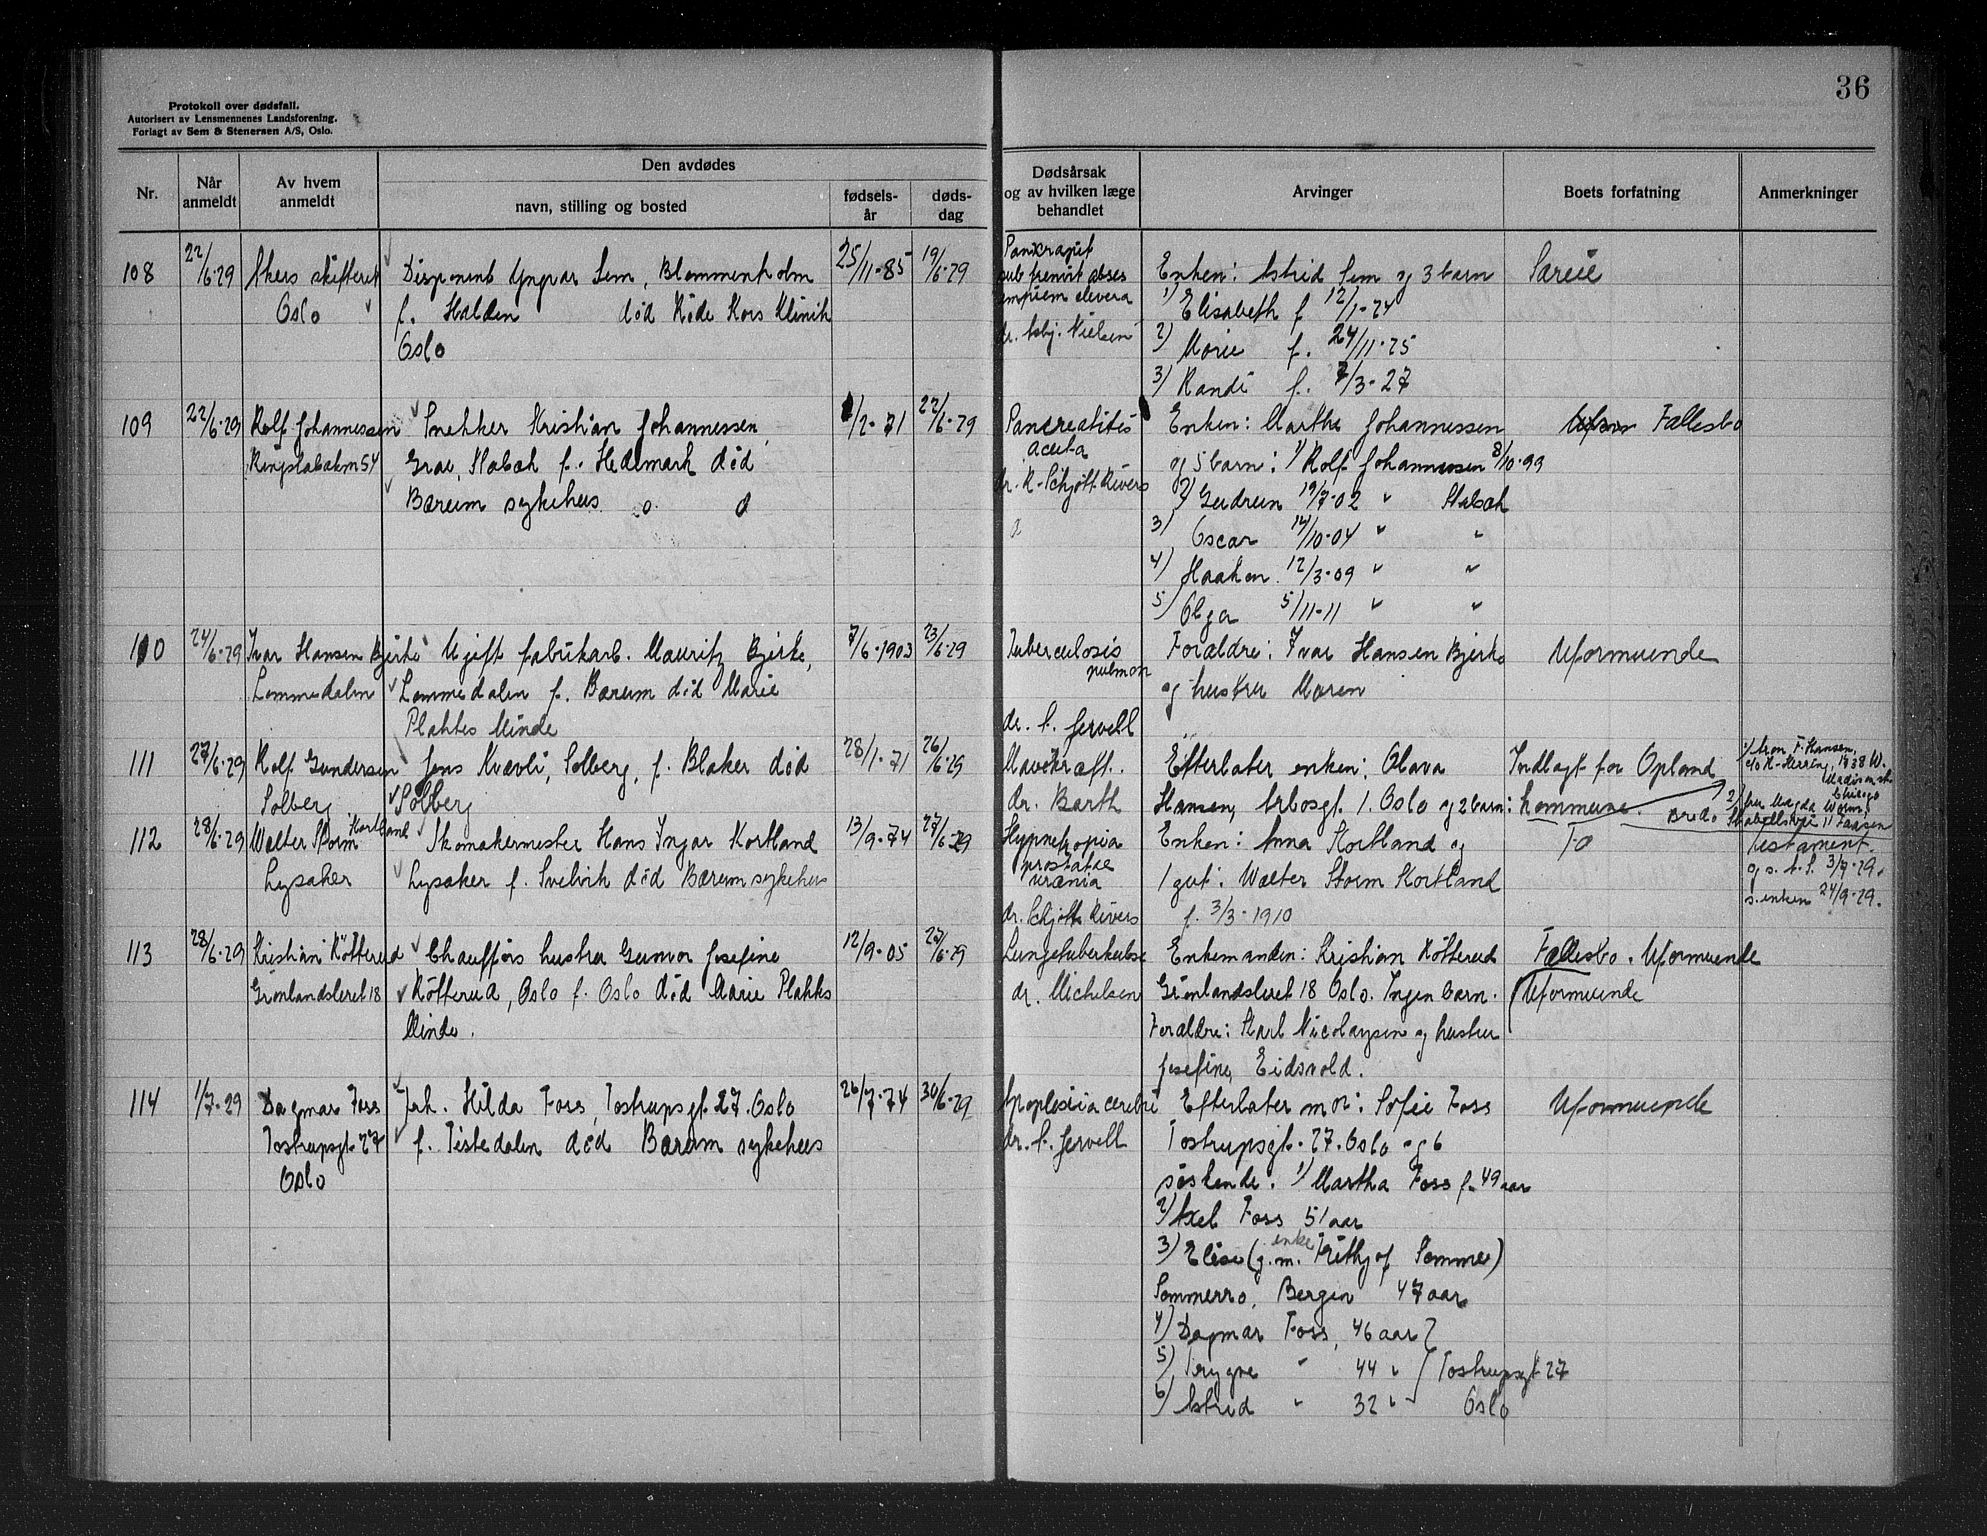 36
Protokoll over dødsfall.
Autorisert av Lensmennenes Landsforening.
Forlagt av Sem & Stenersen A/S, Oslo.
Nr.
Når anmeldt
Av hvem anmeldt
Den avdødes
navn, stilling og bosted
fødsels-år
døds-dag
Dødsårsak og av hvilken læge behandlet
Arvinger
Boets forfatning
Anmerkninger
108 22/6-29 Akers skifteret Disponent Yngvar Sem, Blommenholm 25/11-85 19/6-29
Oslo f. Halden død Røde Kors Klinik
Oslo
dr. Asbj. Nielsen
Enken: Astrid Sem og 3 barn Særeie
1) Elisabeth f 12/1-24
2) Marie f. 24/11-25
3) Randi f. 7/3-27
109 22/6-29 Rolf Johannessen Snekker Kristian Johannessen, /2-71 22/6-29
Ringstabækm 54 Grav, Stabæk f. Hedemark død
Bærum sykehus
Pancreatitis
acuta
dr. R. Schjøtt-Rivers
Enken: Marthe Johannessen Fællesbo
og 5 barn: 1) Rolf Johannessen 8/10-99
2) Gudrun 19/7-02 " Stabæk
3) Oscar 14/10-04 " "
4) Haakon 12/3-09 " "
5) Olga 5/11-11 " "
110 24/6-29 Ivar Hansen Bjerke Ugift fabrikarb. Mauritz Bjerke, 7/6-1903 23/6-29
Lommedalen Lommedalen f. Bærum død Marie
Plahtes Minde
Tuberculosis
pulmon
dr. f. Jervell
Forældre: Ivar Hansen Bjerke Uformuende
og hustru Maren
111 27/6-29 Rolf Gundersen Jens Kvævli, Solberg, f. Blaker død 28/1-71 26/6-29
Solberg Solberg
Mavekræft.
dr. Barth
Efterlater enken: Olava Indlagt for Opland
Hansen, Arbosgt 1. Oslo og 2 barn: kommune.
1/ Aron F. Hansen,
c/o H. Herring, 1838 W.
Madison st
Chicago
112 28/6-29 Walter Storm Kortland Skomakermester Hans Ingar Kortland 13/9-74 27/6-29
Lysaker Lysaker f. Svelvik død Bærum sykehus
prostatae
urænia
dr. Schjøtt Rivers
Enken: Anna Kortland og
1 gut: Walter Storm Kortland
f. 3/3-1910
Testament.
3/7-29.
s. enken 24/9-29.
113 28/6-29 Kristian Køtterud Chaufførs hustru Gunvor Josefine 12/9-05 27/6-29
Grønlandsleret 18 Køtterud, Oslo f. Oslo død Marie Plahtes
Minde.
Lungetuberkulose
dr. Michelsen
Enkemanden: Kristian Køtterud Fællesbo. Uformuende
Grønlandsleret 18 Oslo. Ingen barn. Uformuende
Forældre: Karl Nicolaysen og hustru
Josefine, Eidsvold.
114 1/7-29 Dagmar Foss Frk. Hilda Foss, Tostrupsgt. 27. Oslo 26/7-74 30/6-29
Tostrupsgt 27 f. Tistedalen død Bærum sykehus
Oslo
Apoplexia cerebri
dr. f. Jervell
Efterlater mor: Sofie Foss Uformuende
Tostrupsgt. 27. Oslo og 6
søskende: 1) Martha Foss f. 49 aar
2) Axel Foss 51 aar
3) Elise (g.m. enke Frithjof Sommer)
Sommerro, Bergen 47 aar
4) Dagmar Foss, 46 aar
5) Trygve " 44 " Tostrupsgt 27
6) Astrid " 32 " Oslo